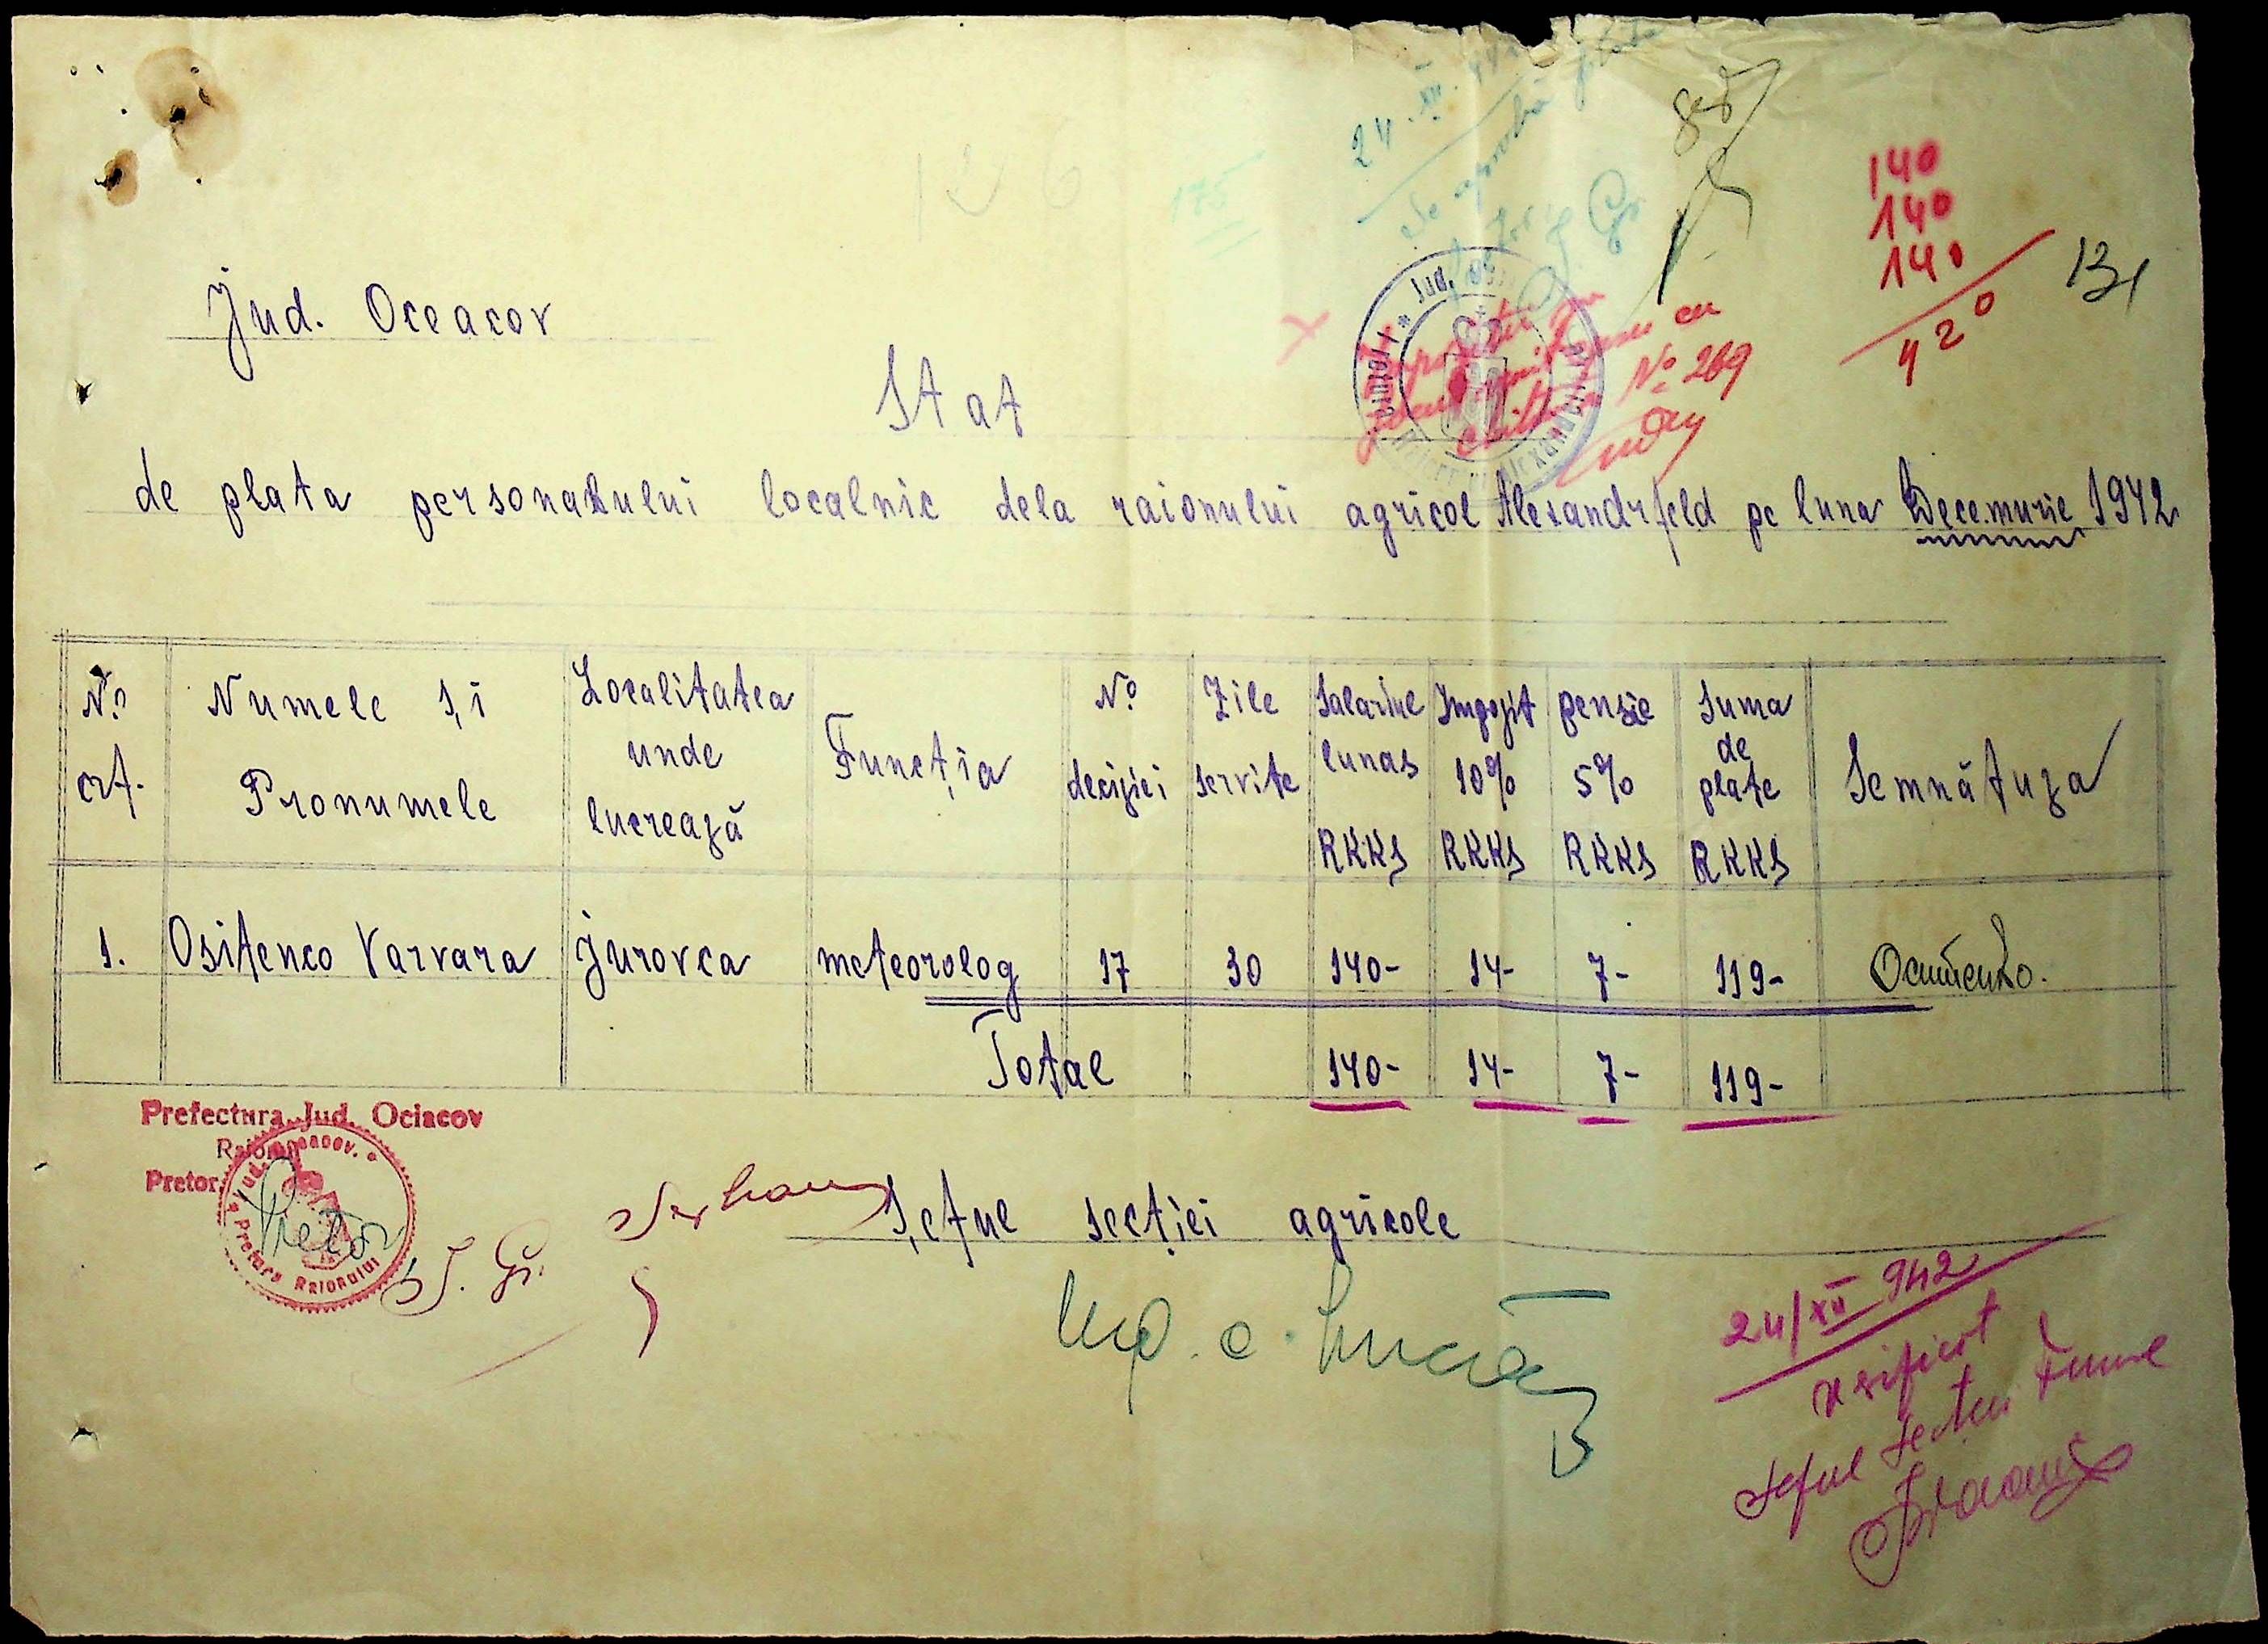 126
175
24.XII.
Se aprobă plata
140
140
140
420
131
Jud. Oceacov
Stat
Nº 269
de plata personalului localnic dela raionului agricol Alexandrfeld pe luna Decemvrie 1942
Nº crt.
Numele și Pronumele
Localitatea unde lucrează
Funcția
Nº deciziei
Zile servite
Salariul lunar RKKS
Impozit 10% RKKS
pensie 5% RKKS
Suma de plate RKKS
Semnătura
1. Ositenco Varvara Jurovca meteorolog 17 30 140- 14- 7- 119- Оситенко.
Total 140- 14- 7- 119-
Prefectura Jud. Ociacov
Raionul
Pretor
Jud. Oceacov. Pretura Raionului
Pretor
Șeful secției agricole
24/XII 942
verificat
Șeful Secției